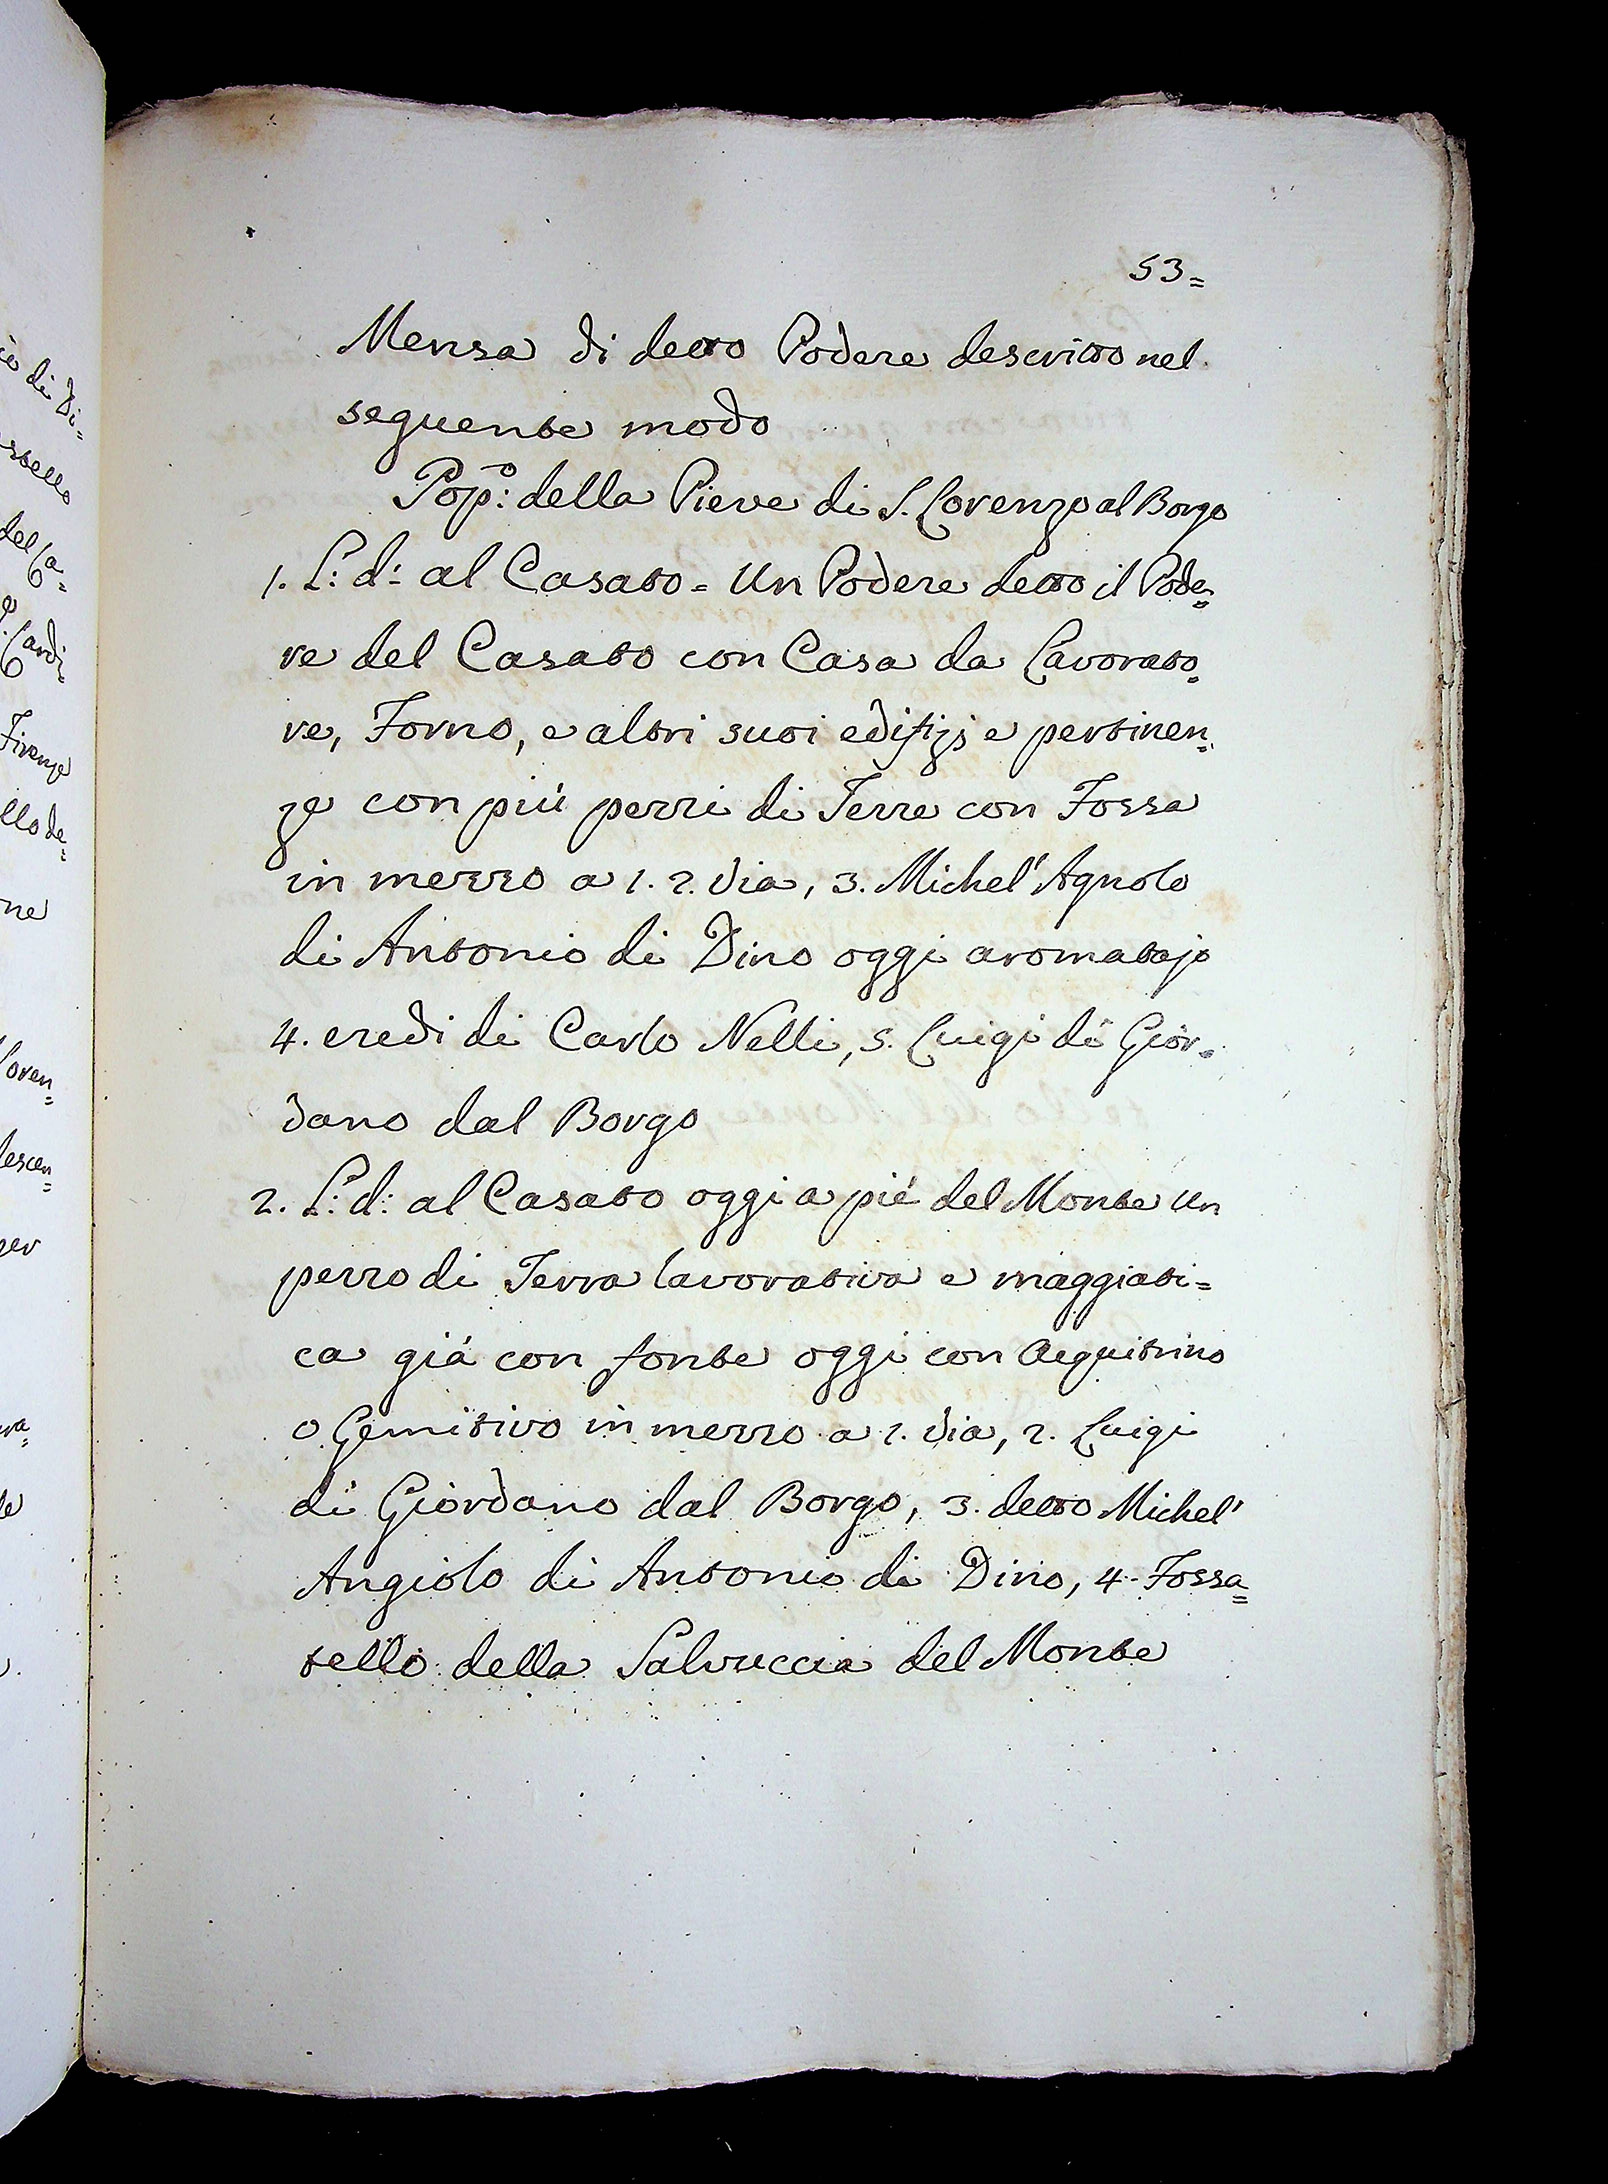 53=
Mensa di detto Podere descritto nel
seguente modo
Pop.º: della Pieve di S. Lorenzo al Borgo
1. L: d: al Casato = Un Podere detto il Pode=
re del Casato con Casa da Lavorato=
re, Forno, e altri suoi edifizj e pertinen=
ze con più pezzi di Terre con Fossa
in mezzo a 1. 2. Via, 3. Michel' Agnolo
di Antonio di Dino oggi aromatajo
4. eredi di Carlo Nelli, 5. Luigi di Gior=
dano dal Borgo
2. L: d: al Casato oggi a piè del Monte Un
pezzo di Terra lavorativa e maggiati=
ca già con fonte oggi con Acquitrino
o Gemitivo in mezzo a 1. Via, 2. Luigi
di Giordano dal Borgo, 3. detto Michel'
Angiolo di Antonio di Dino, 4. Fossa=
tello della Salvuccia del Monte
è di Di=
stello
del Ca=
Cardi=
Firenze
llo de=
ne
Loren=
descen=
per